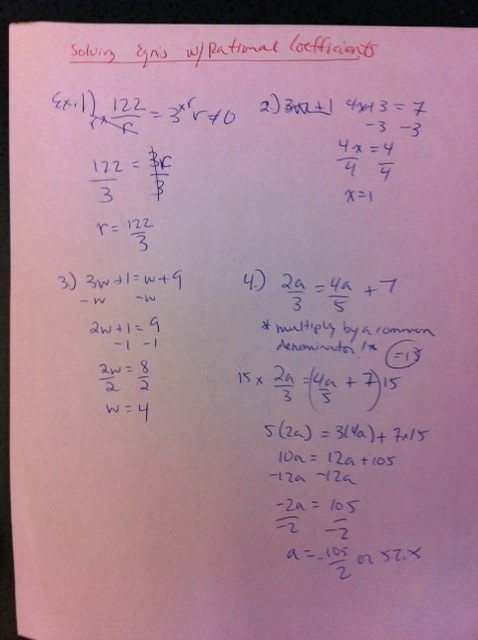 Solving Eqn's w/Rational Coefficients
Ex. 1) 122/r = 3 ×r r≠0
r×
122/3 = 3r/3
r = 122/3
2.) 3w+1 4x+3 = 7
-3 -3
4x/4 = 4/4
x=1
3.) 3w+1=w+9
-w -w
2w+1=9
-1 -1
2w/2 = 8/2
w=4
4.) 2a/3 = 4a/5 + 7
* multiply by a common
denominator! *
=15
15 × 2a/3 = (4a/5 + 7)15
5(2a) = 3(4a) + 7×15
10a = 12a + 105
-12a -12a
-2a/-2 = 105/-2
a = -105/2 or 52.5